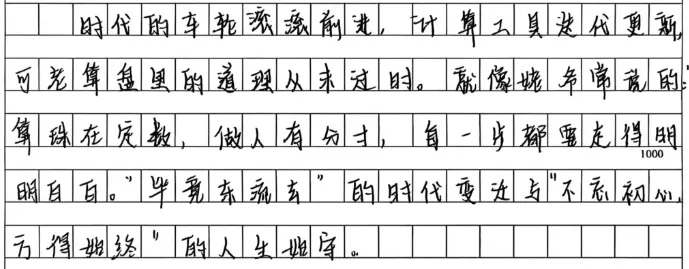 时代的车轮滚滚前进，计算工具迭代更新，
可老算盘里的道理从未过时。就像姥爷常说的："
算珠在定数，做人有分寸，每一步都要走得明
1000
明白白。"毕竟东流去"的时代变迁与"不忘初心，
方得始终"的人生始守。